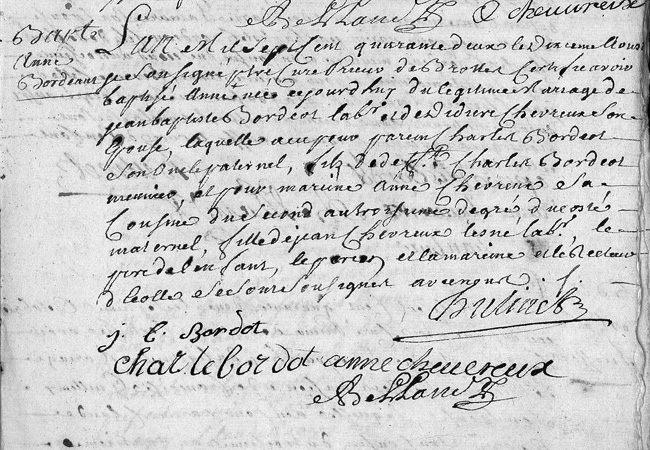 A Belland O cheuvreux
Bapte
Anne
Bordeaut
L'an Mil Sept Cent quarante deux le dixieme Aoux
je Soussigné ptre Curé Prieur de Brottes Certifie avoir
baptisé Anne née ce jourd'huy du legitime Mariage de
jean baptiste Bordeot labr et de Didiere Chevreux Son
Epouse, laquelle a eu pour parein Charles Bordeot
Son Oncle paternel, filz de deff Charles Bordeot
meunier, et pour mareine Anne Chevreux Sa
Cousine du Second au troisieme degré du costé
maternel, fille de jean Chevreux lesne labr, le
pere de l'enfant, le parein et la mareine et le Recteur
d'Ecolle Se Sont Soussignes avec nous
j. b. Bordot
charle bordot anne cheuereux
A Belland